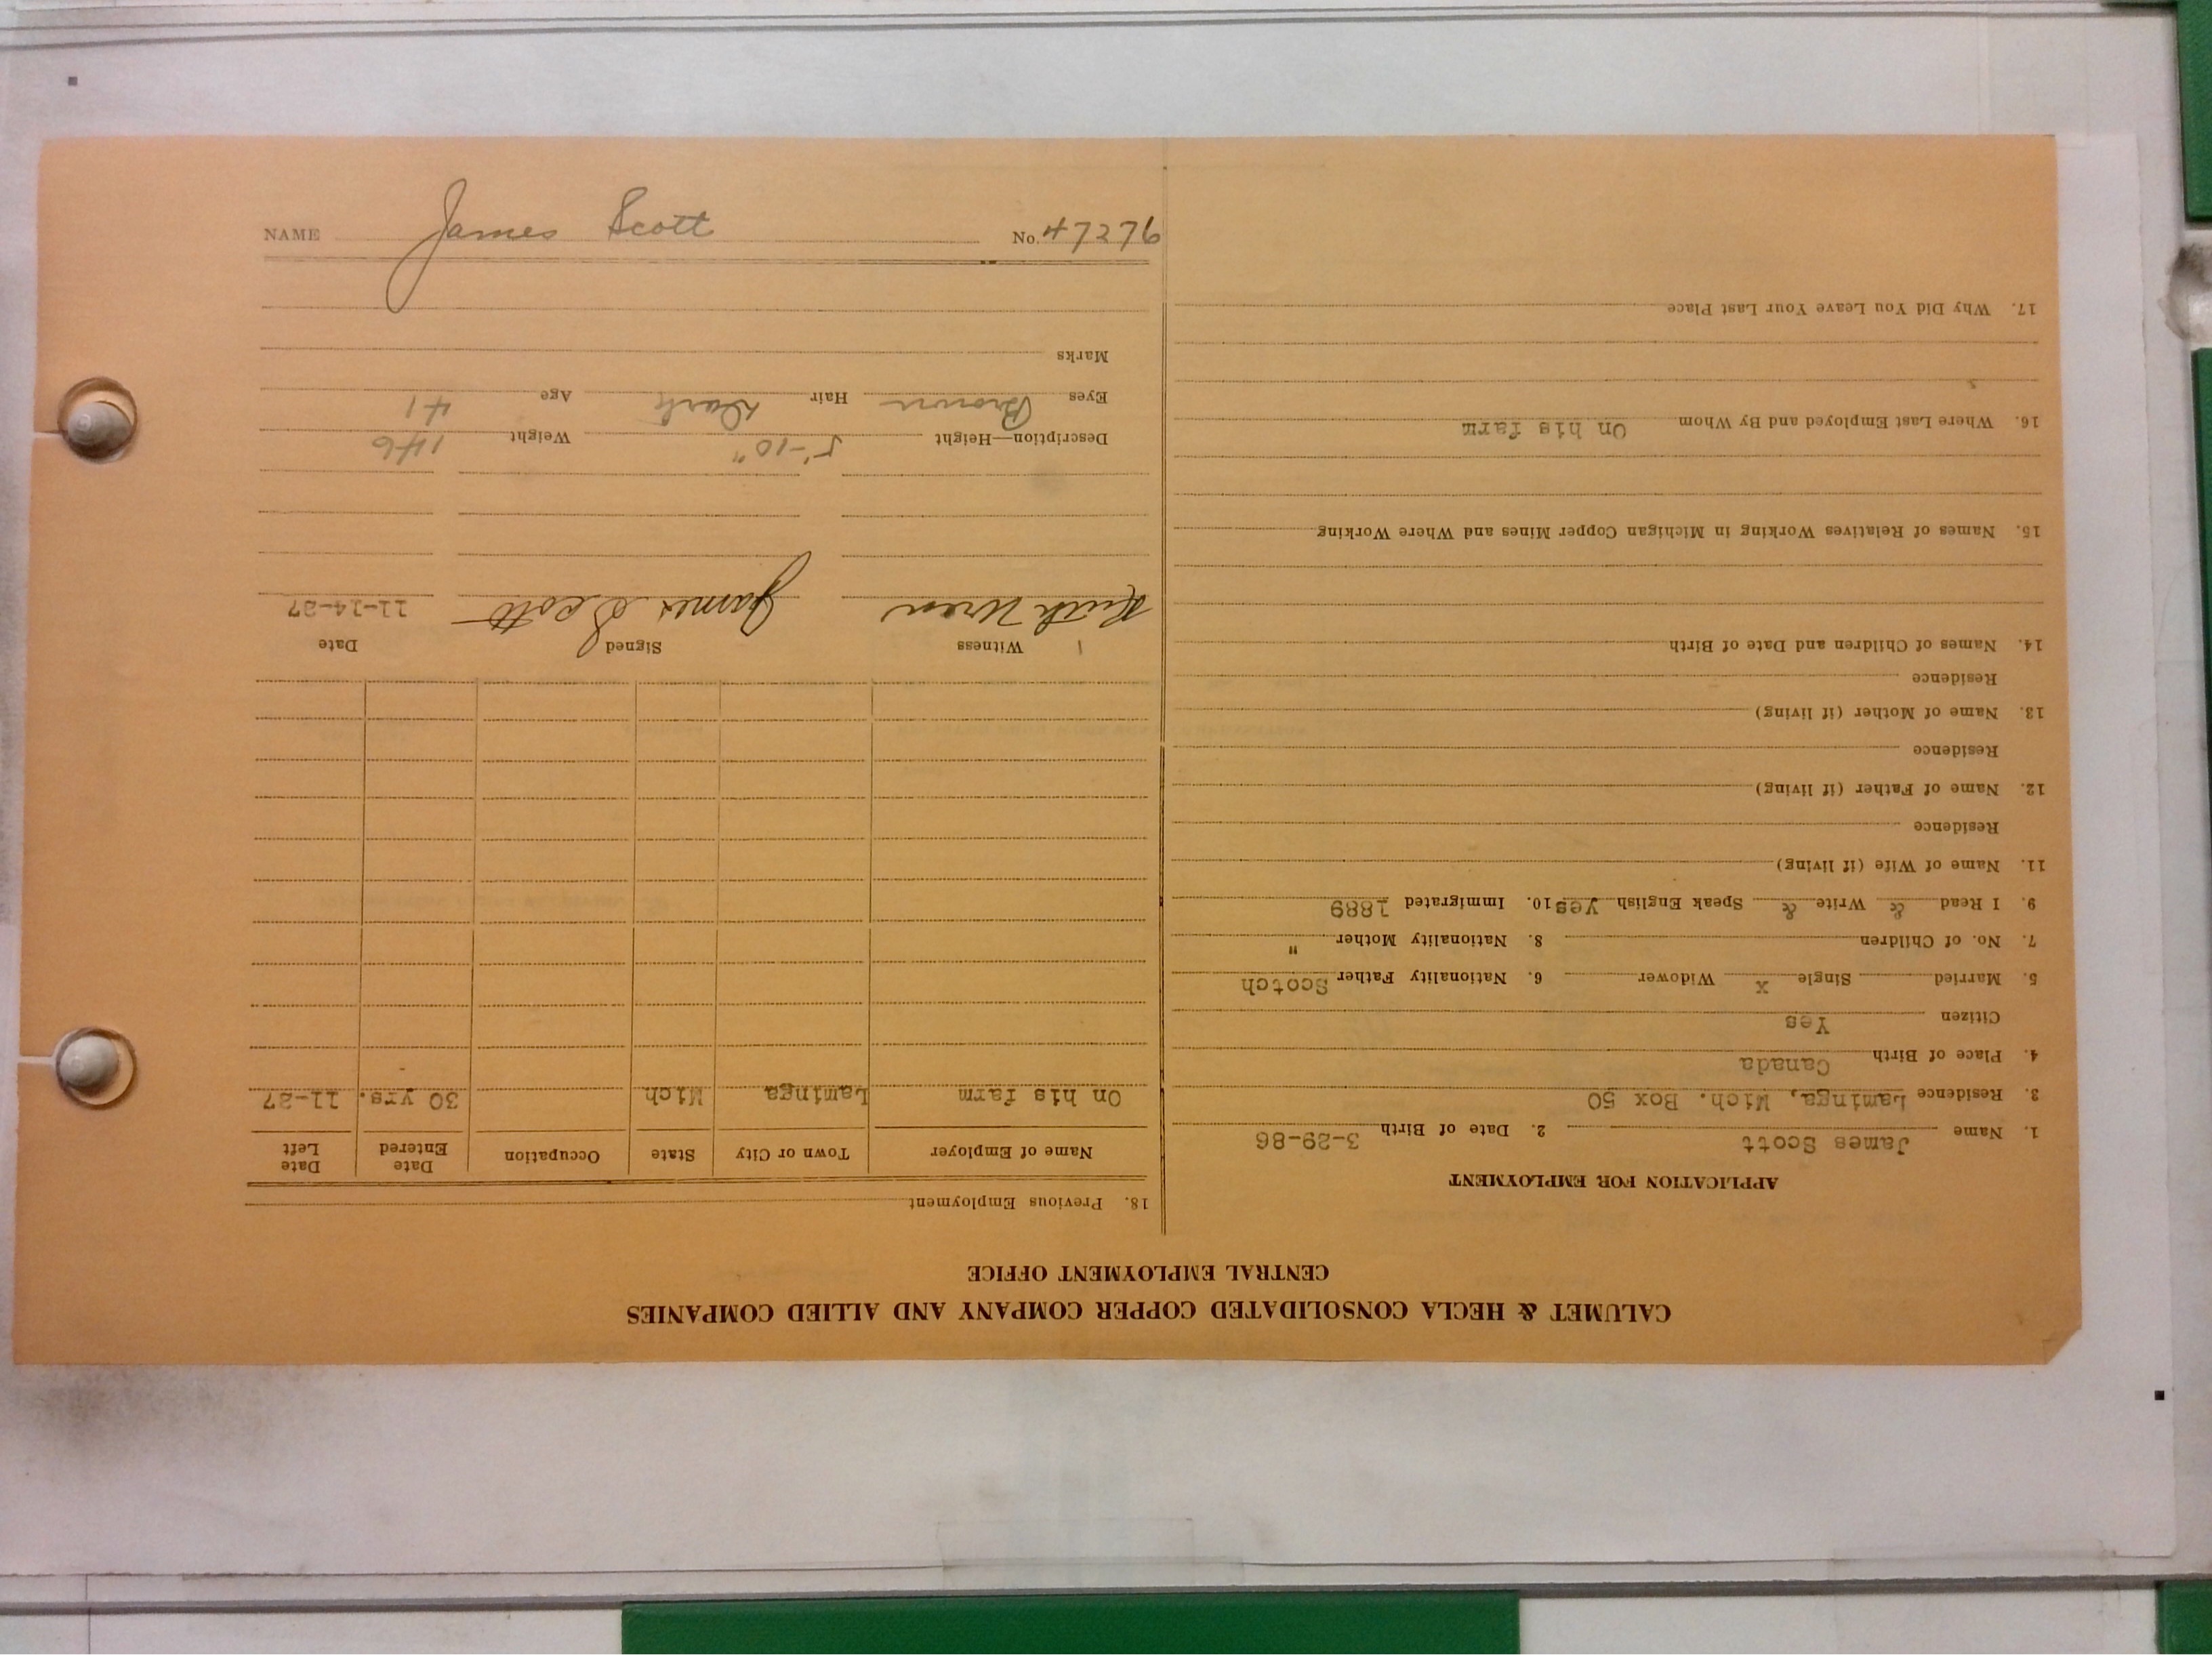 CALUMET & HECLA CONSOLIDATED COPPER COMPANY AND ALLIED COMPANIES
CENTRAL EMPLOYMENT OFFICE
APPLICATION FOR EMPLOYMENT
1. Name James Scott 2. Date of Birth 3-29-86
3. Residence Laminga, Mich. Box 50
4. Place of Birth Canada
Citizen Yes
5. Married Single x Widower 6. Nationality Father Scotch
7. No. of Children 8. Nationality Mother "
9. I Read & Write & Speak English Yes 10. Immigrated 1889
11. Name of Wife (if living)
Residence
12. Name of Father (if living)
Residence
13. Name of Mother (if living)
Residence
14. Names of Children and Date of Birth
15. Names of Relatives Working in Michigan Copper Mines and Where Working
16. Where Last Employed and By Whom On his farm
17. Why Did You Leave Your Last Place
18. Previous Employment
Name of Employer Town or City State Occupation Date Entered Date Left
On his farm Laminga Mich 30 yrs. 11-27
Witness Signed Date
Keith Uren James Scott 11-14-27
Description—Height 5'-10" Weight 146
Eyes Brown Hair Dark Age 41
Marks
NAME James Scott No. 47276